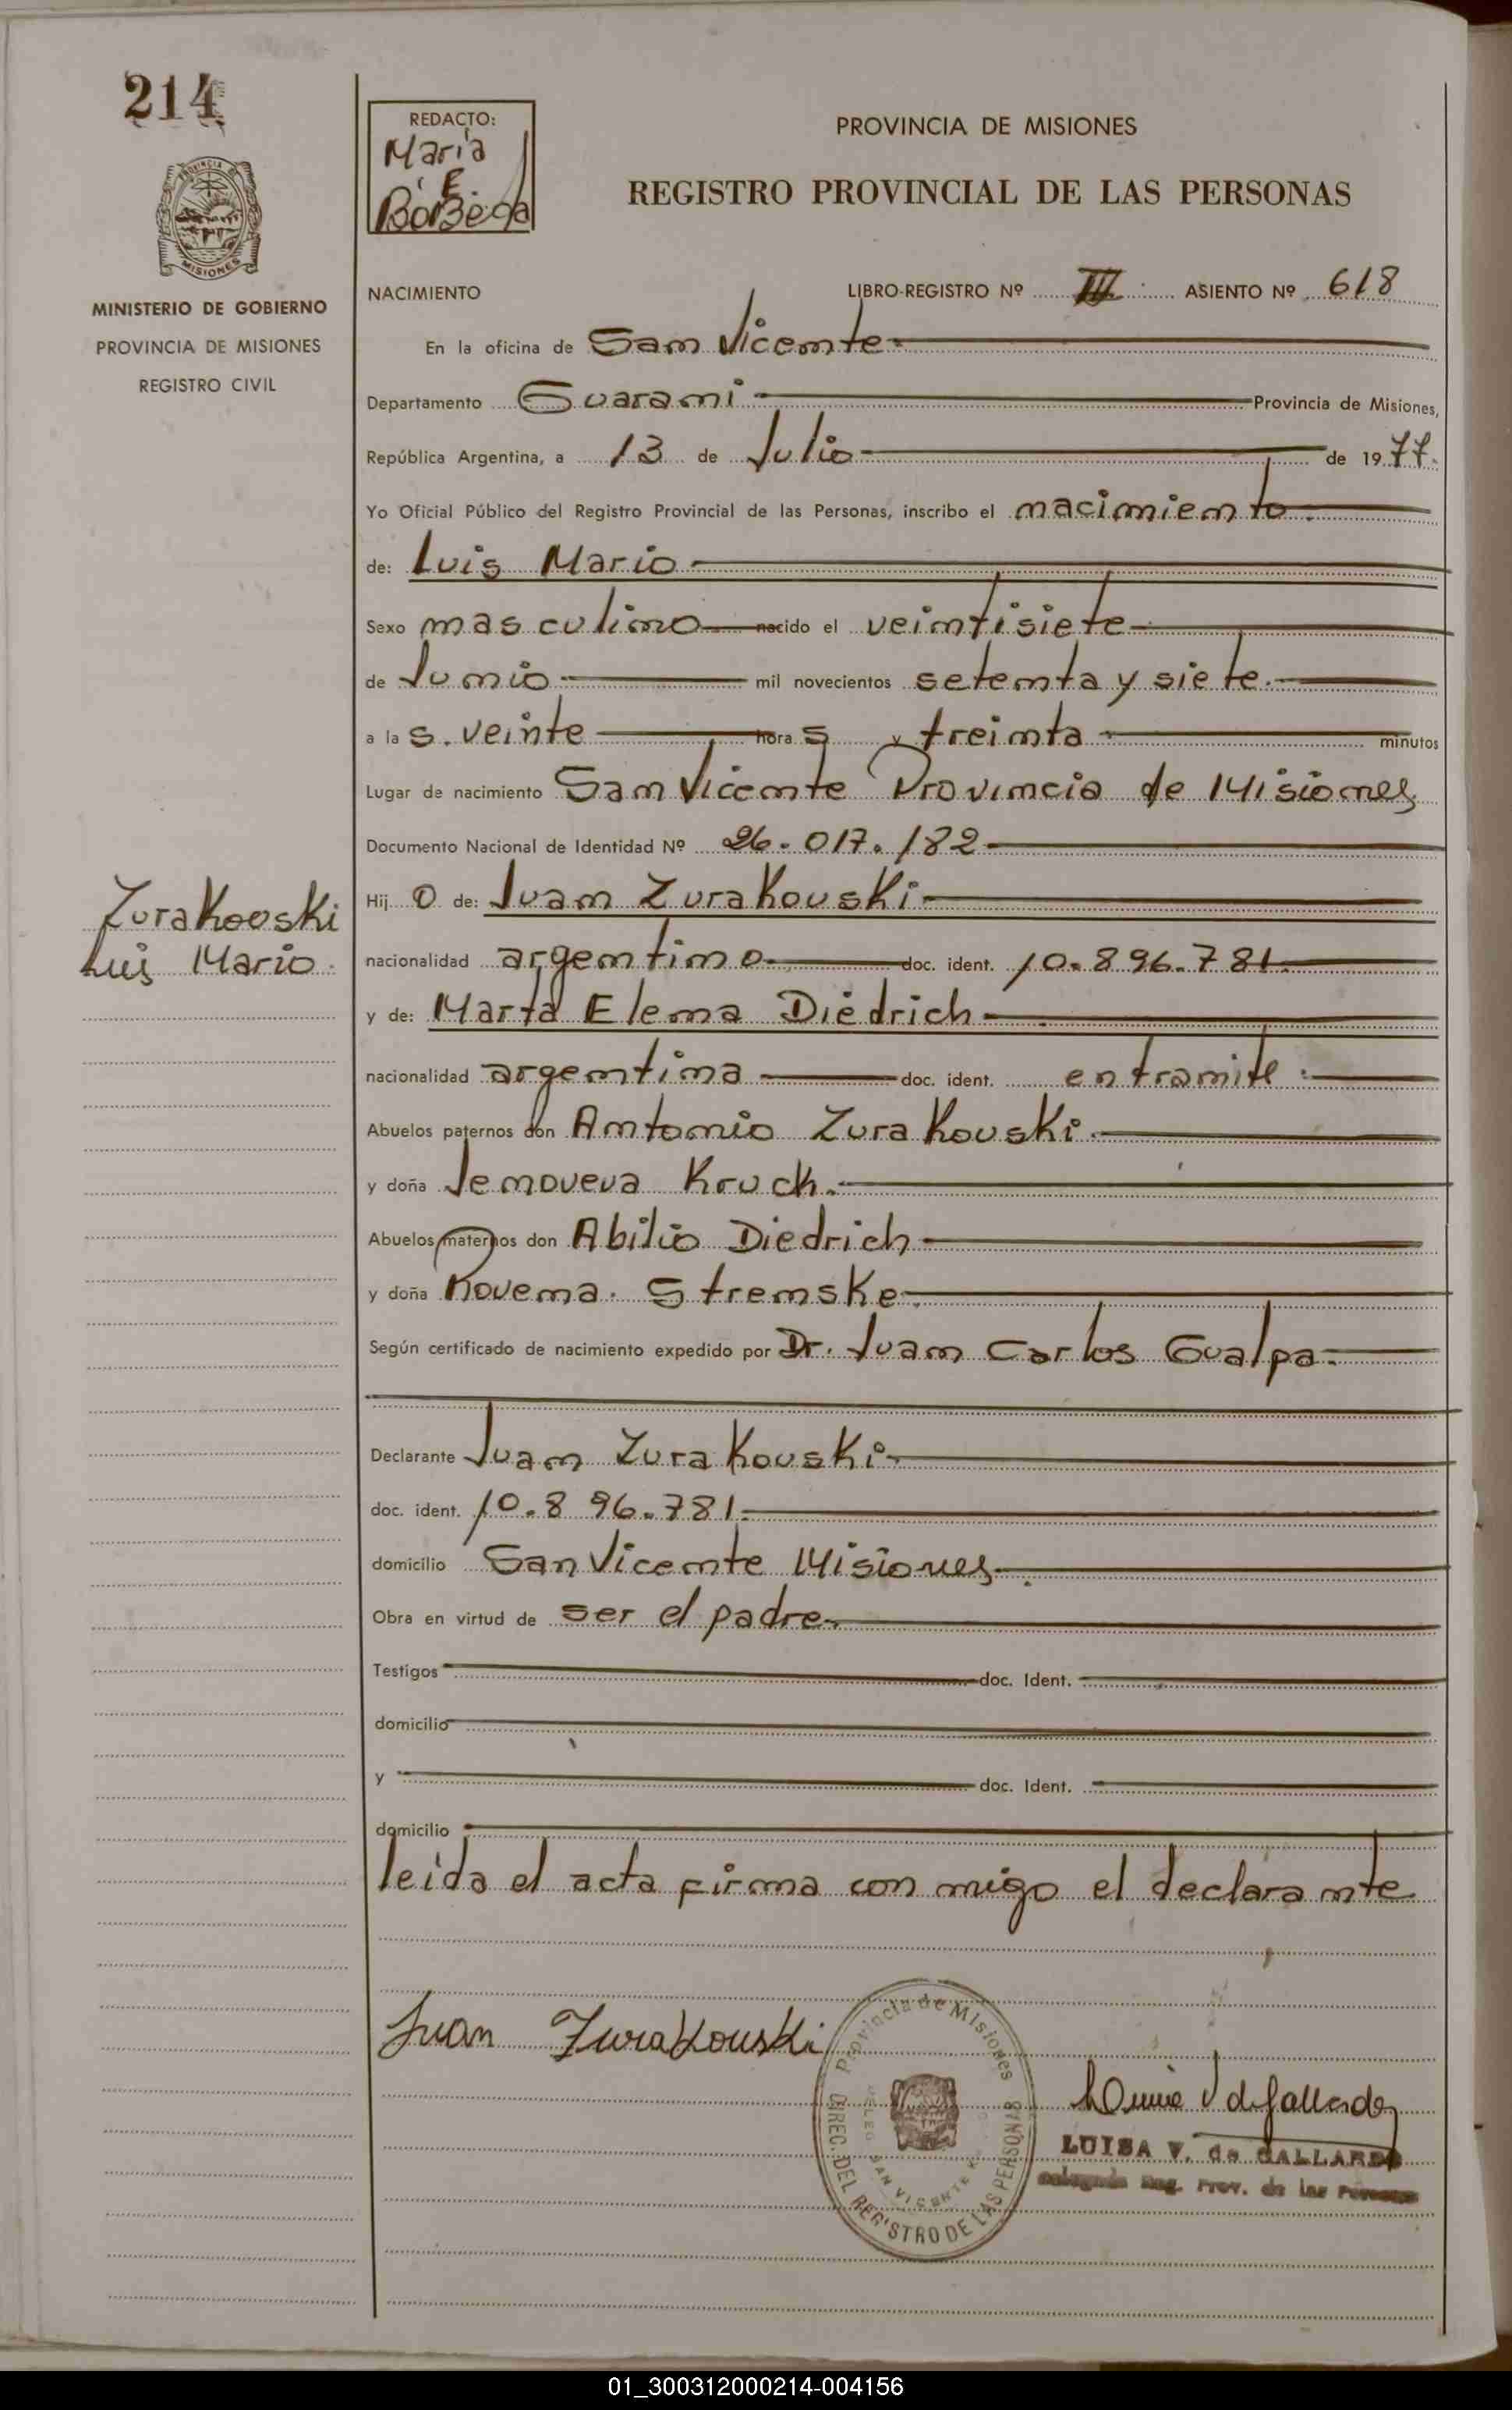 214
REDACTO:
Maria
E.
PROVINCIA DE MISIONES
REGISTRO PROVINCIAL DE LAS PERSONAS
PROVINCIA DE
MISIONES
MINISTERIO DE GOBIERNO
PROVINCIA DE MISIONES
REGISTRO CIVIL
NACIMIENTO LIBRO-REGISTRO Nº III ASIENTO Nº 618
En la oficina de San Vicente
Departamento Guarani Provincia de Misiones,
República Argentina, a 13 de Julio de 1977.
Yo Oficial Público del Registro Provincial de las Personas, inscribo el nacimiento.
de: Luis Mario
Sexo masculino nacido el veintisiete
de Junio mil novecientos setenta y siete.
a las. veinte horas y treinta minutos
Lugar de nacimiento San Vicente Provincia de Misiones
Documento Nacional de Identidad Nº 26.017.182
Hijo de: Juan Zurakouski
Zurakouski
Luis Mario.
nacionalidad argentino doc. ident. 10.896.781.
y de: Marta Elena Diedrich
nacionalidad argentina doc. ident. en tramite
Abuelos paternos don Antonio Zurakouski.
y doña Jenoveva Kruck.
Abuelos maternos don Abilio Diedrich
y doña Rovena. Stremske.
Según certificado de nacimiento expedido por Dr. Juan Carlos Gualpa.
Declarante Juan Zurakouski
doc. ident. 10.896.781.
domicilio San Vicente Misiones.
Obra en virtud de ser el padre.
Testigos doc. Ident.
domicilio
y doc. Ident.
domicilio
leida el acta firma con migo el declarante
Juan Zurakouski
Provincia de Misiones
DIREC. DEL REGISTRO DE LAS PERSONAS
SAN VICENTE
LUISA V. de GALLARDO
Delegada Reg. Prov. de las Personas
01_300312000214-004156